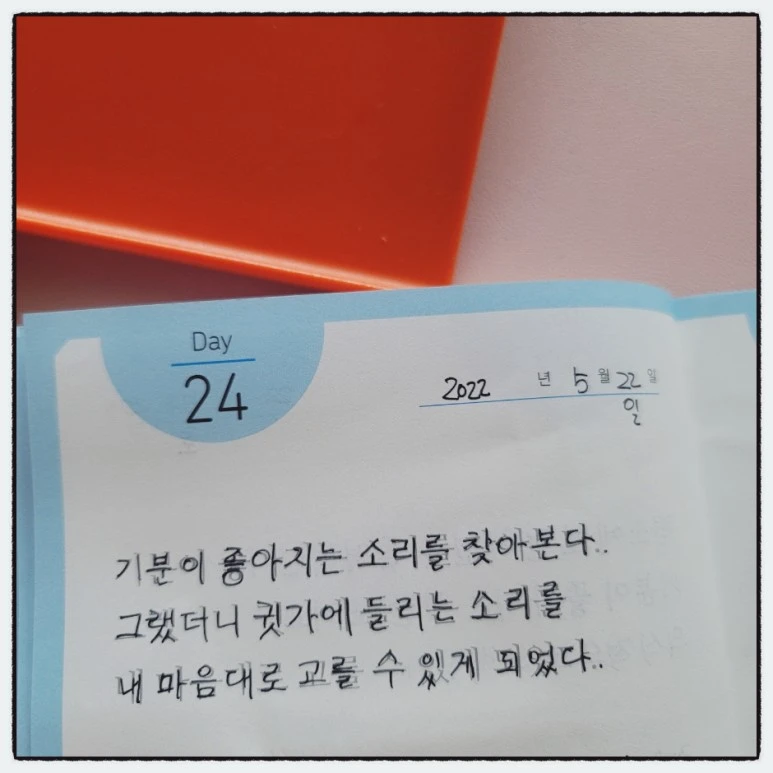 Day
24
2022 년 5 월 22 일
일
기분이 좋아지는 소리를 찾아본다..
그랬더니 귓가에 들리는 소리를
내 마음대로 고를 수 있게 되었다..